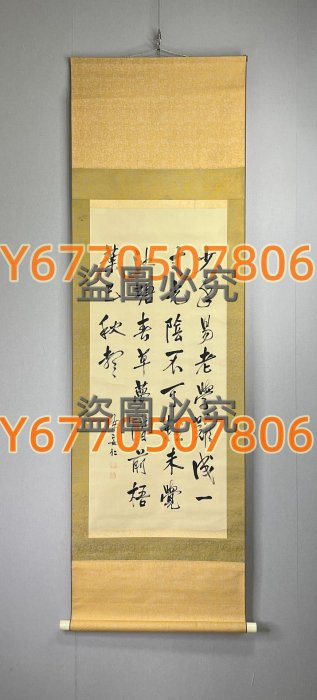 少年易老學難成一
寸光陰不可輕未覺
池塘春草夢階前梧
葉已秋聲
Y6770507806
盜圖必究
盜圖必究
Y6770507806